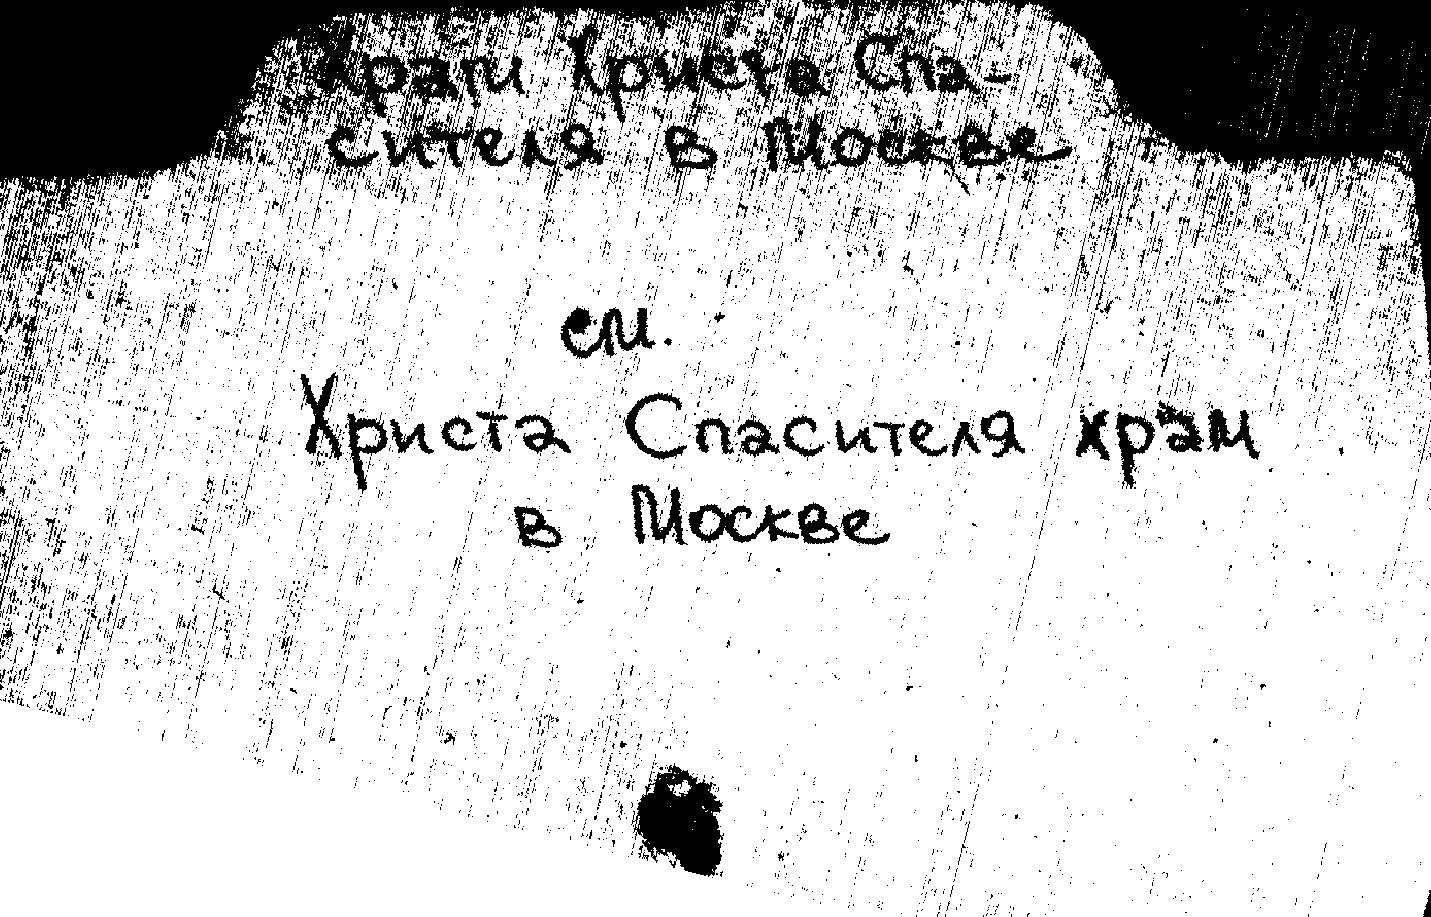 Храм Христа Спа-
сителя в Москве
см.
Христа Спасителя храм
в Москве